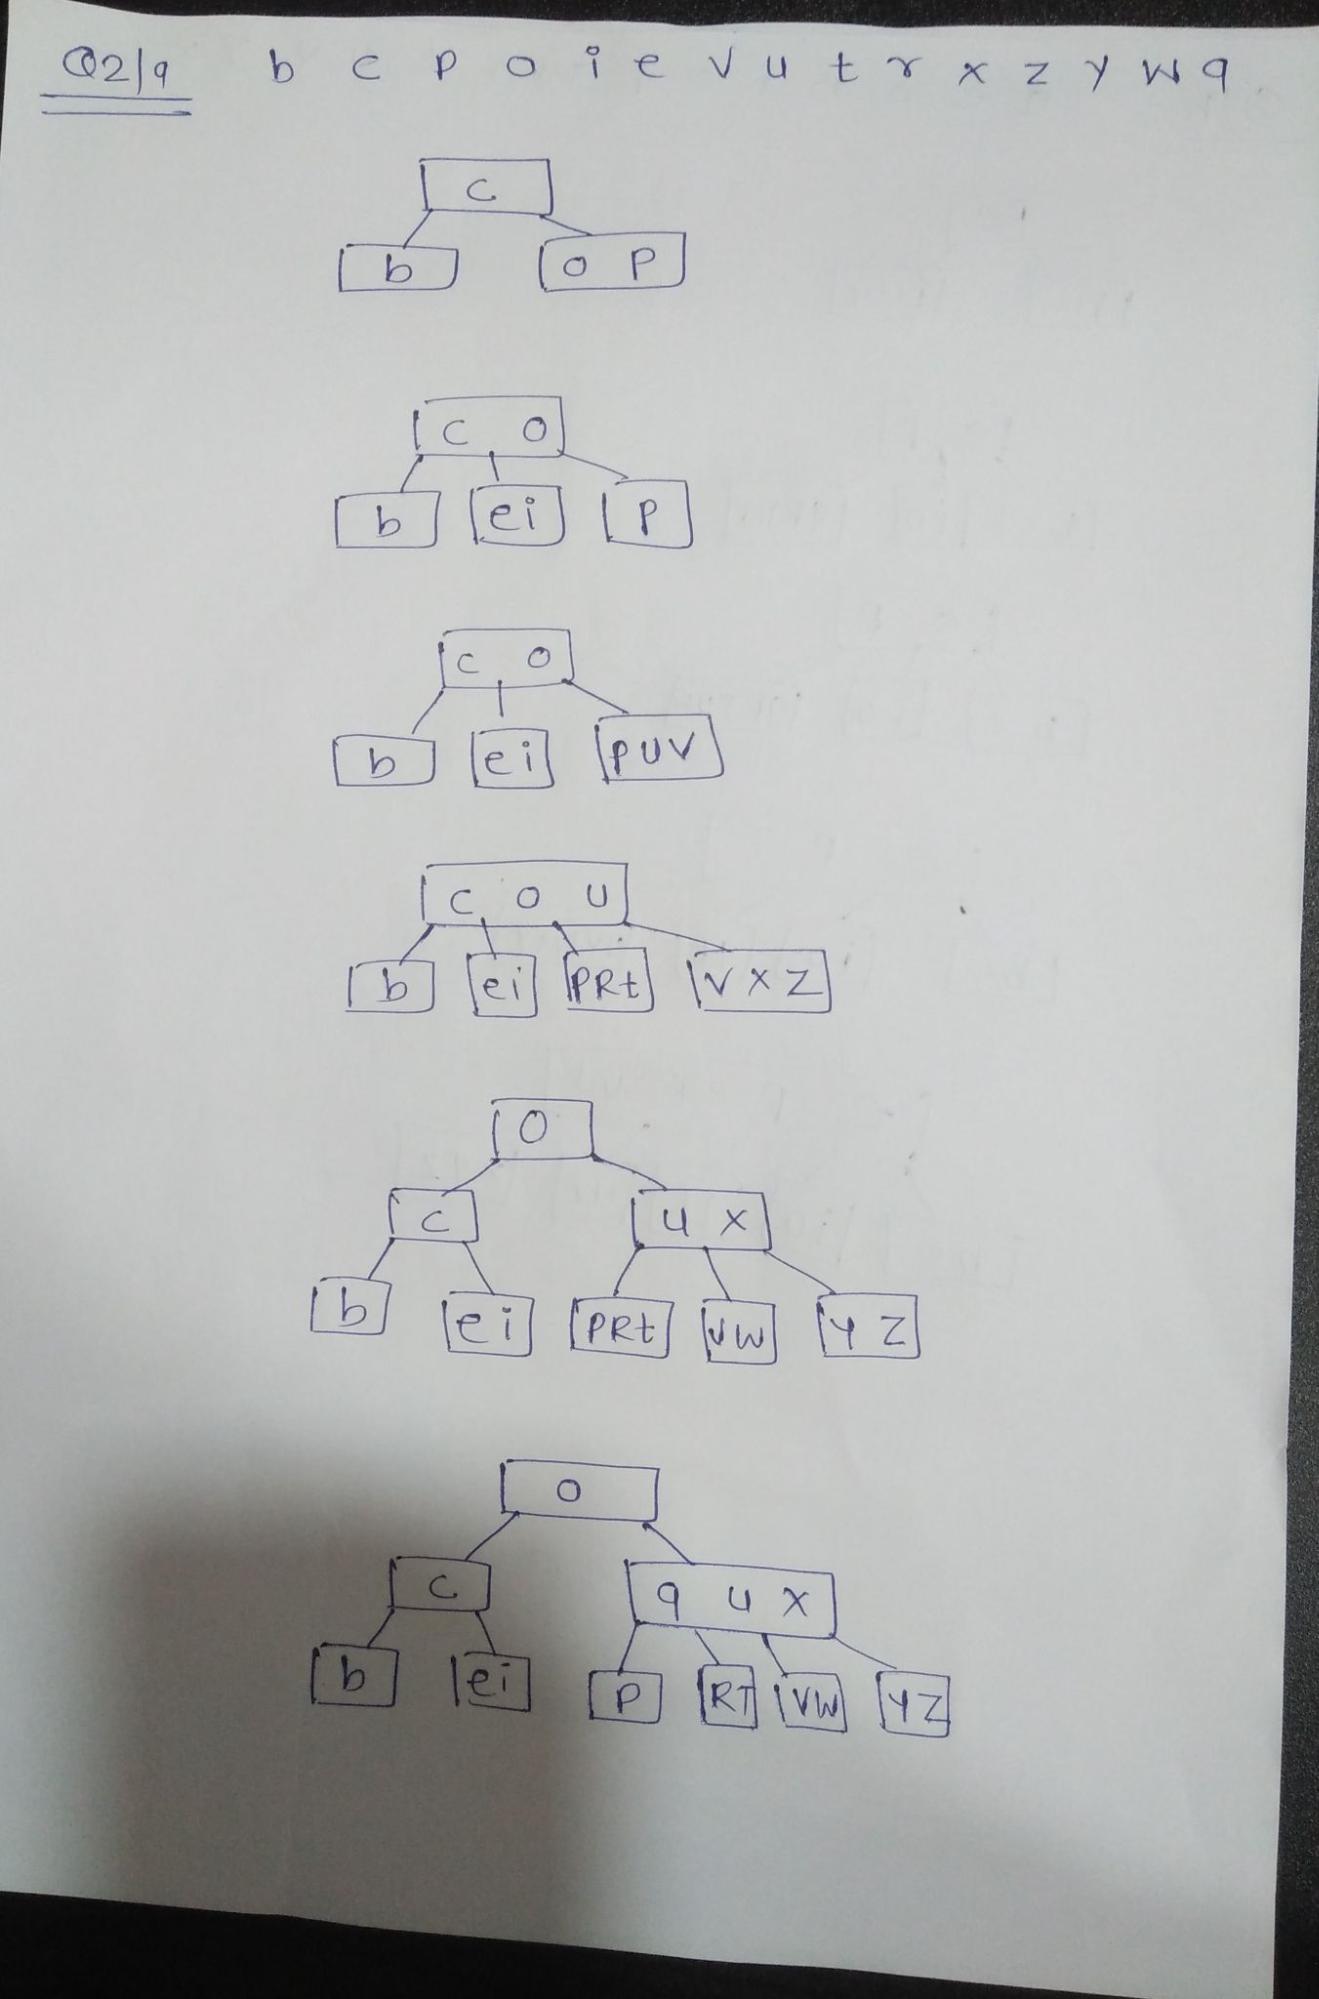 Q2/9 b c p o i e v u t r x z y w q
c
b o p
c o
b ei p
c o
b ei PUV
c o u
b ei PRt V X Z
O
c u x
b ei PRt VW Y Z
o
c q u x
b ei P RT VW YZ